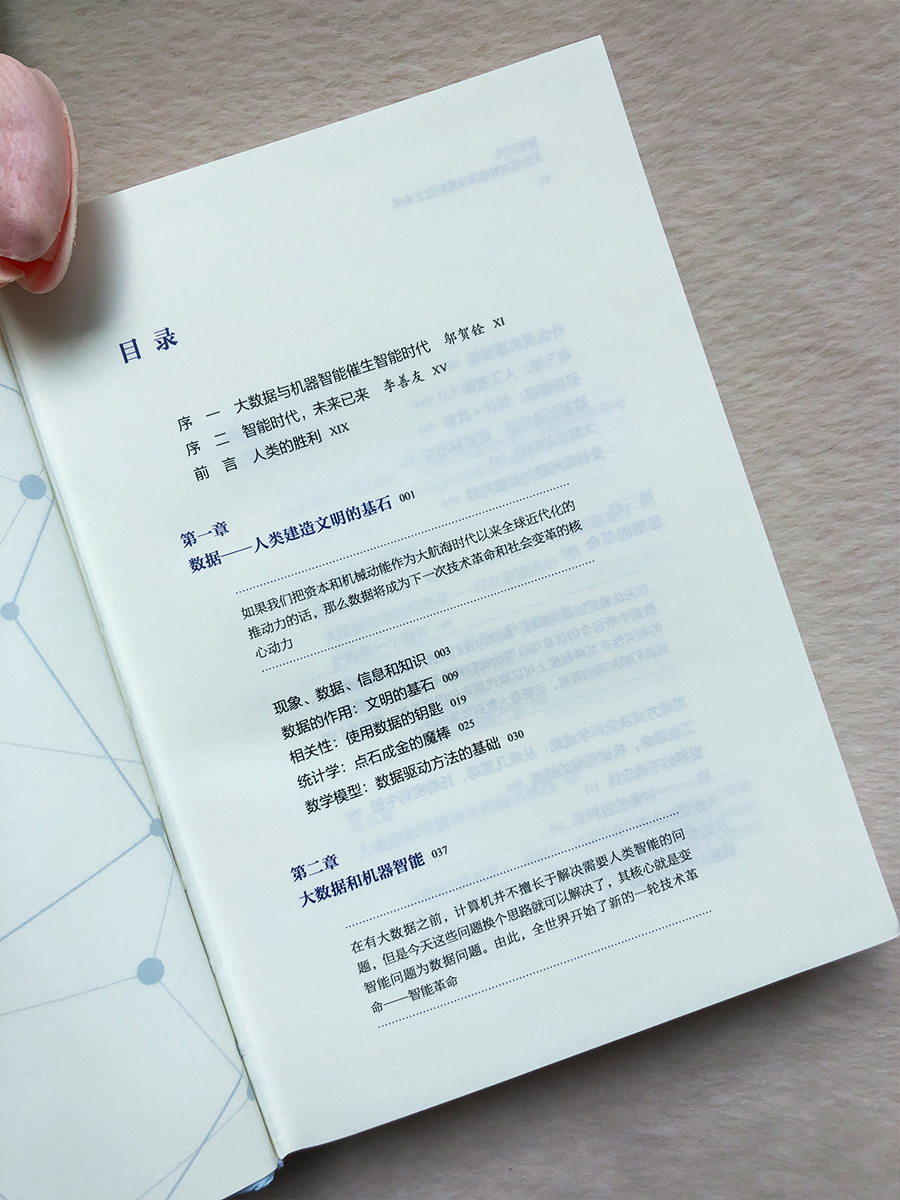 目录
序 一 大数据与机器智能催生智能时代 邬贺铨 XI
序 二 智能时代，未来已来 李善友 XV
前 言 人类的胜利 XIX
第一章
数据——人类建造文明的基石 001
如果我们把资本和机械动能作为大航海时代以来全球近代化的
推动力的话，那么数据将成为下一次技术革命和社会变革的核
心动力
现象、数据、信息和知识 003
数据的作用：文明的基石 009
相关性：使用数据的钥匙 019
统计学：点石成金的魔棒 025
数学模型：数据驱动方法的基础 030
第二章
大数据和机器智能 037
在有大数据之前，计算机并不擅长于解决需要人类智能的问
题，但是今天这些问题换个思路就可以解决了，其核心就是变
智能问题为数据问题。由此，全世界开始了新的一轮技术革
命——智能革命